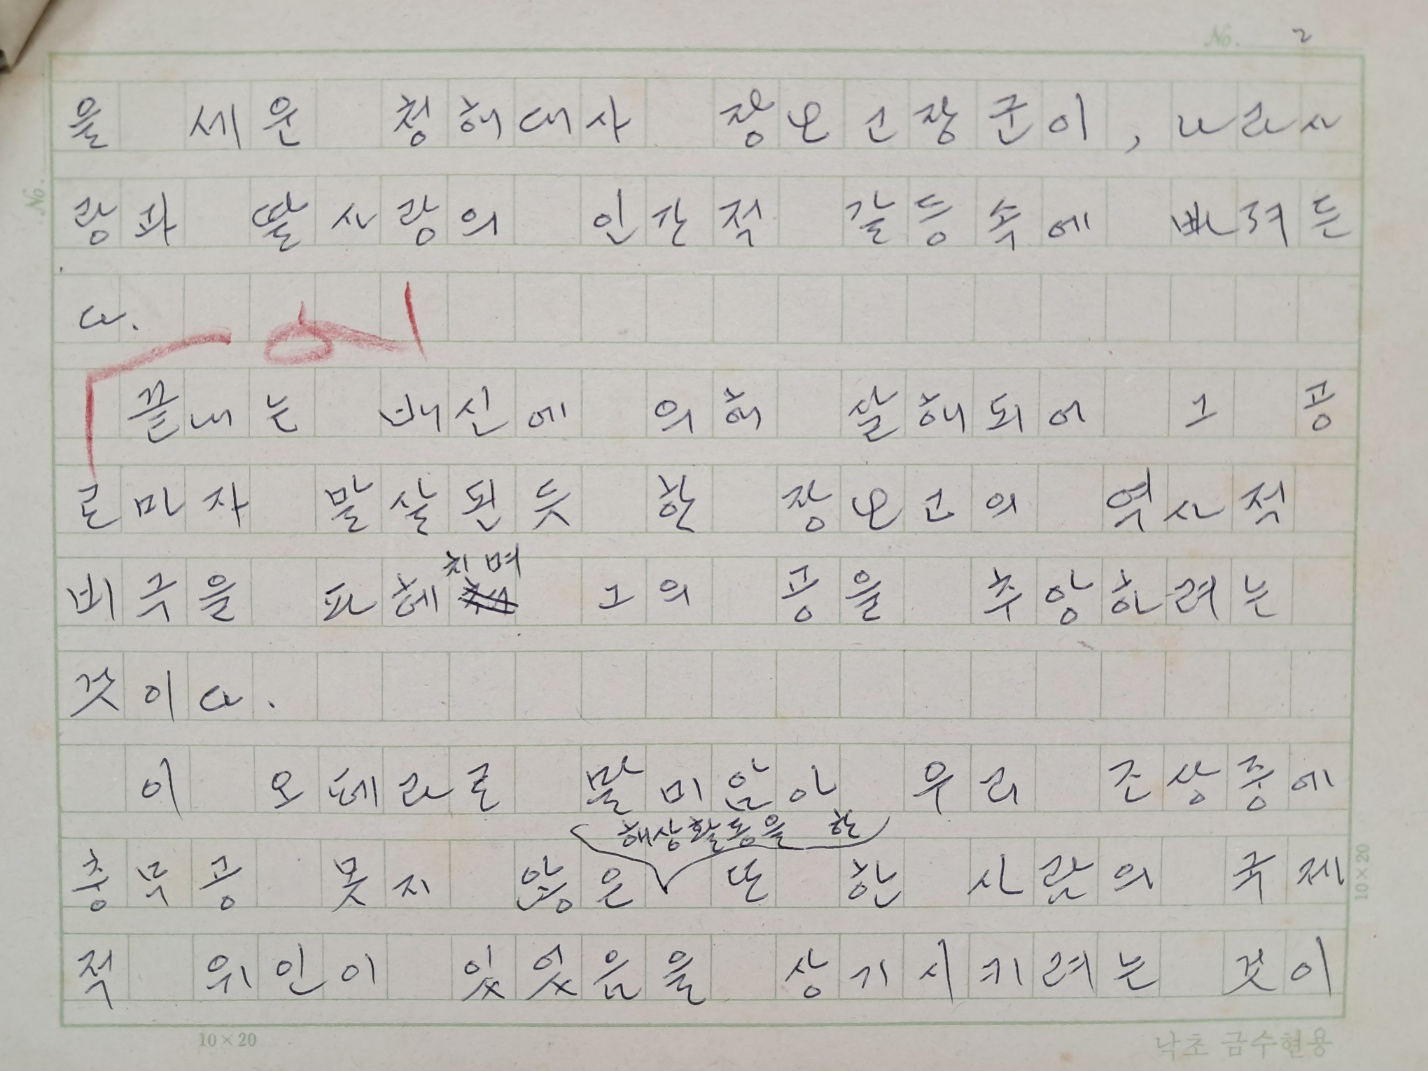 No. 2
을 세운 청해대사 장보고장군이, 나라사
랑과 딸사랑의 인간적 갈등속에 빠져든
다.
끝내는 배신에 의해 살해되어 그 공
로마자 말살된듯 한 장보고의 역사적
비극을 파헤치며 그의 공을 추앙하려는
것이다.
이 오페라로 말미암아 우리 조상중에
해상활동을 한
충무공 못지 않은 또 한 사람의 국제
적 위인이 있었음을 상기시키려는 것이
10×20
낙초 금수현용
No.
10×20